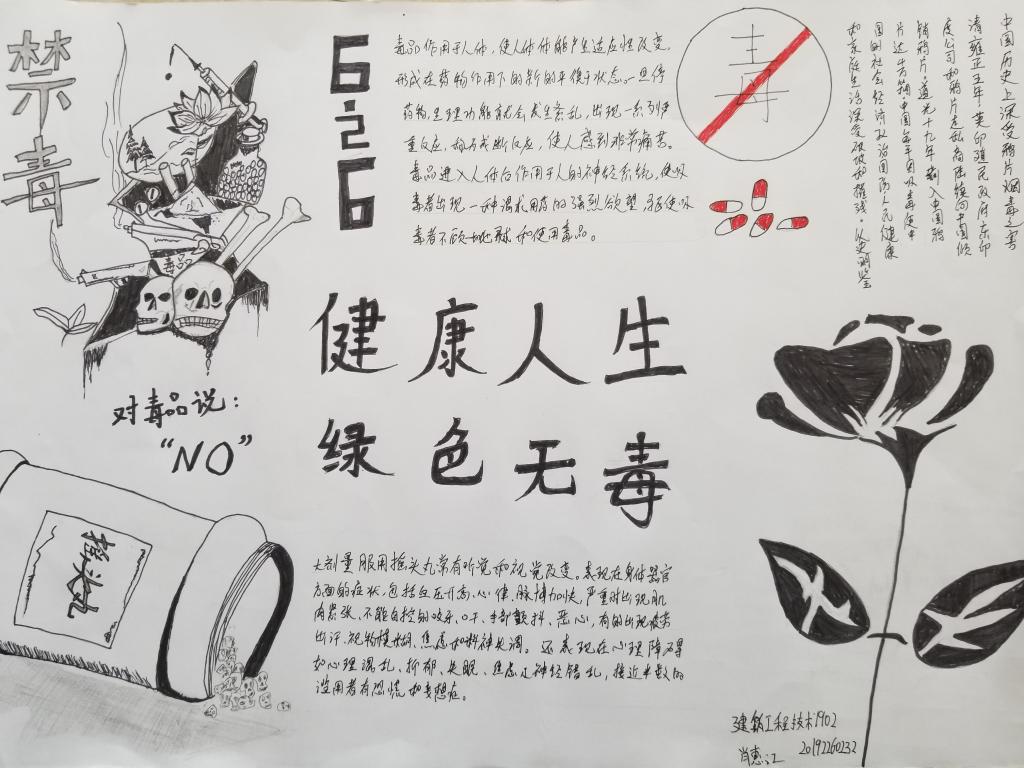 禁毒
毒品
对毒品说：
“NO”
摇头丸
6·26
毒品作用于人体，使人体体能产生适应性改变，
形成在药物作用下的新的平衡状态。一旦停
药物，生理功能就会发生紊乱，出现一系列严
重反应，称为戒断反应，使人感到非常痛苦。
毒品进入人体后作用于人的神经系统，使吸
毒者出现一种渴求用药的强烈欲望，驱使吸
毒者不顾一切地寻求和使用毒品。
毒
中国历史上深受鸦片烟毒之害
清雍正五年，英印殖民政府东印
度公司和鸦片走私商陆续向中国倾
销鸦片，道光十九年输入中国鸦
片达4万箱，中国每年因吸毒使中
国的社会经济政治国防人民健康
和家庭生活深受破坏和摧残。以史为鉴
健康人生
绿色无毒
大剂量服用摇头丸常有听觉和视觉改变。表现在身体器官
方面的症状，包括血压升高、心悸、脉搏加快，严重时出现肌
肉紧张、不能自控的咬牙、手部颤抖、恶心，有的出现疲劳
出汗、视物模糊、焦虑和精神失调。还表现在心理障碍
如心理混乱、抑郁、失眠、焦虑及神经错乱，接近半数的
滥用者有恐慌和妄想症。
建筑工程技术1902
肖惠江 20192260232